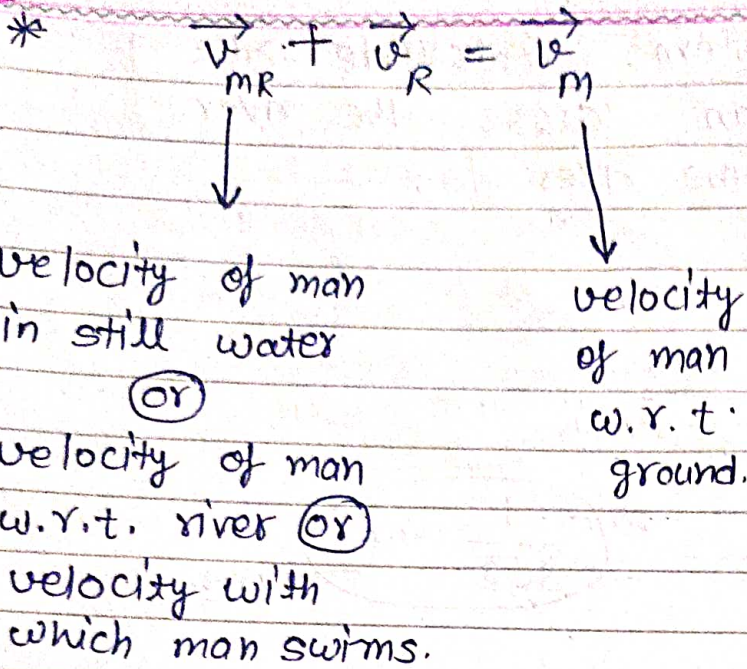 * v⃗_MR + v⃗_R = v⃗_M
velocity of man
in still water
or
velocity of man
w.r.t. river or
velocity with
which man swims.
velocity
of man
w.r.t.
ground.